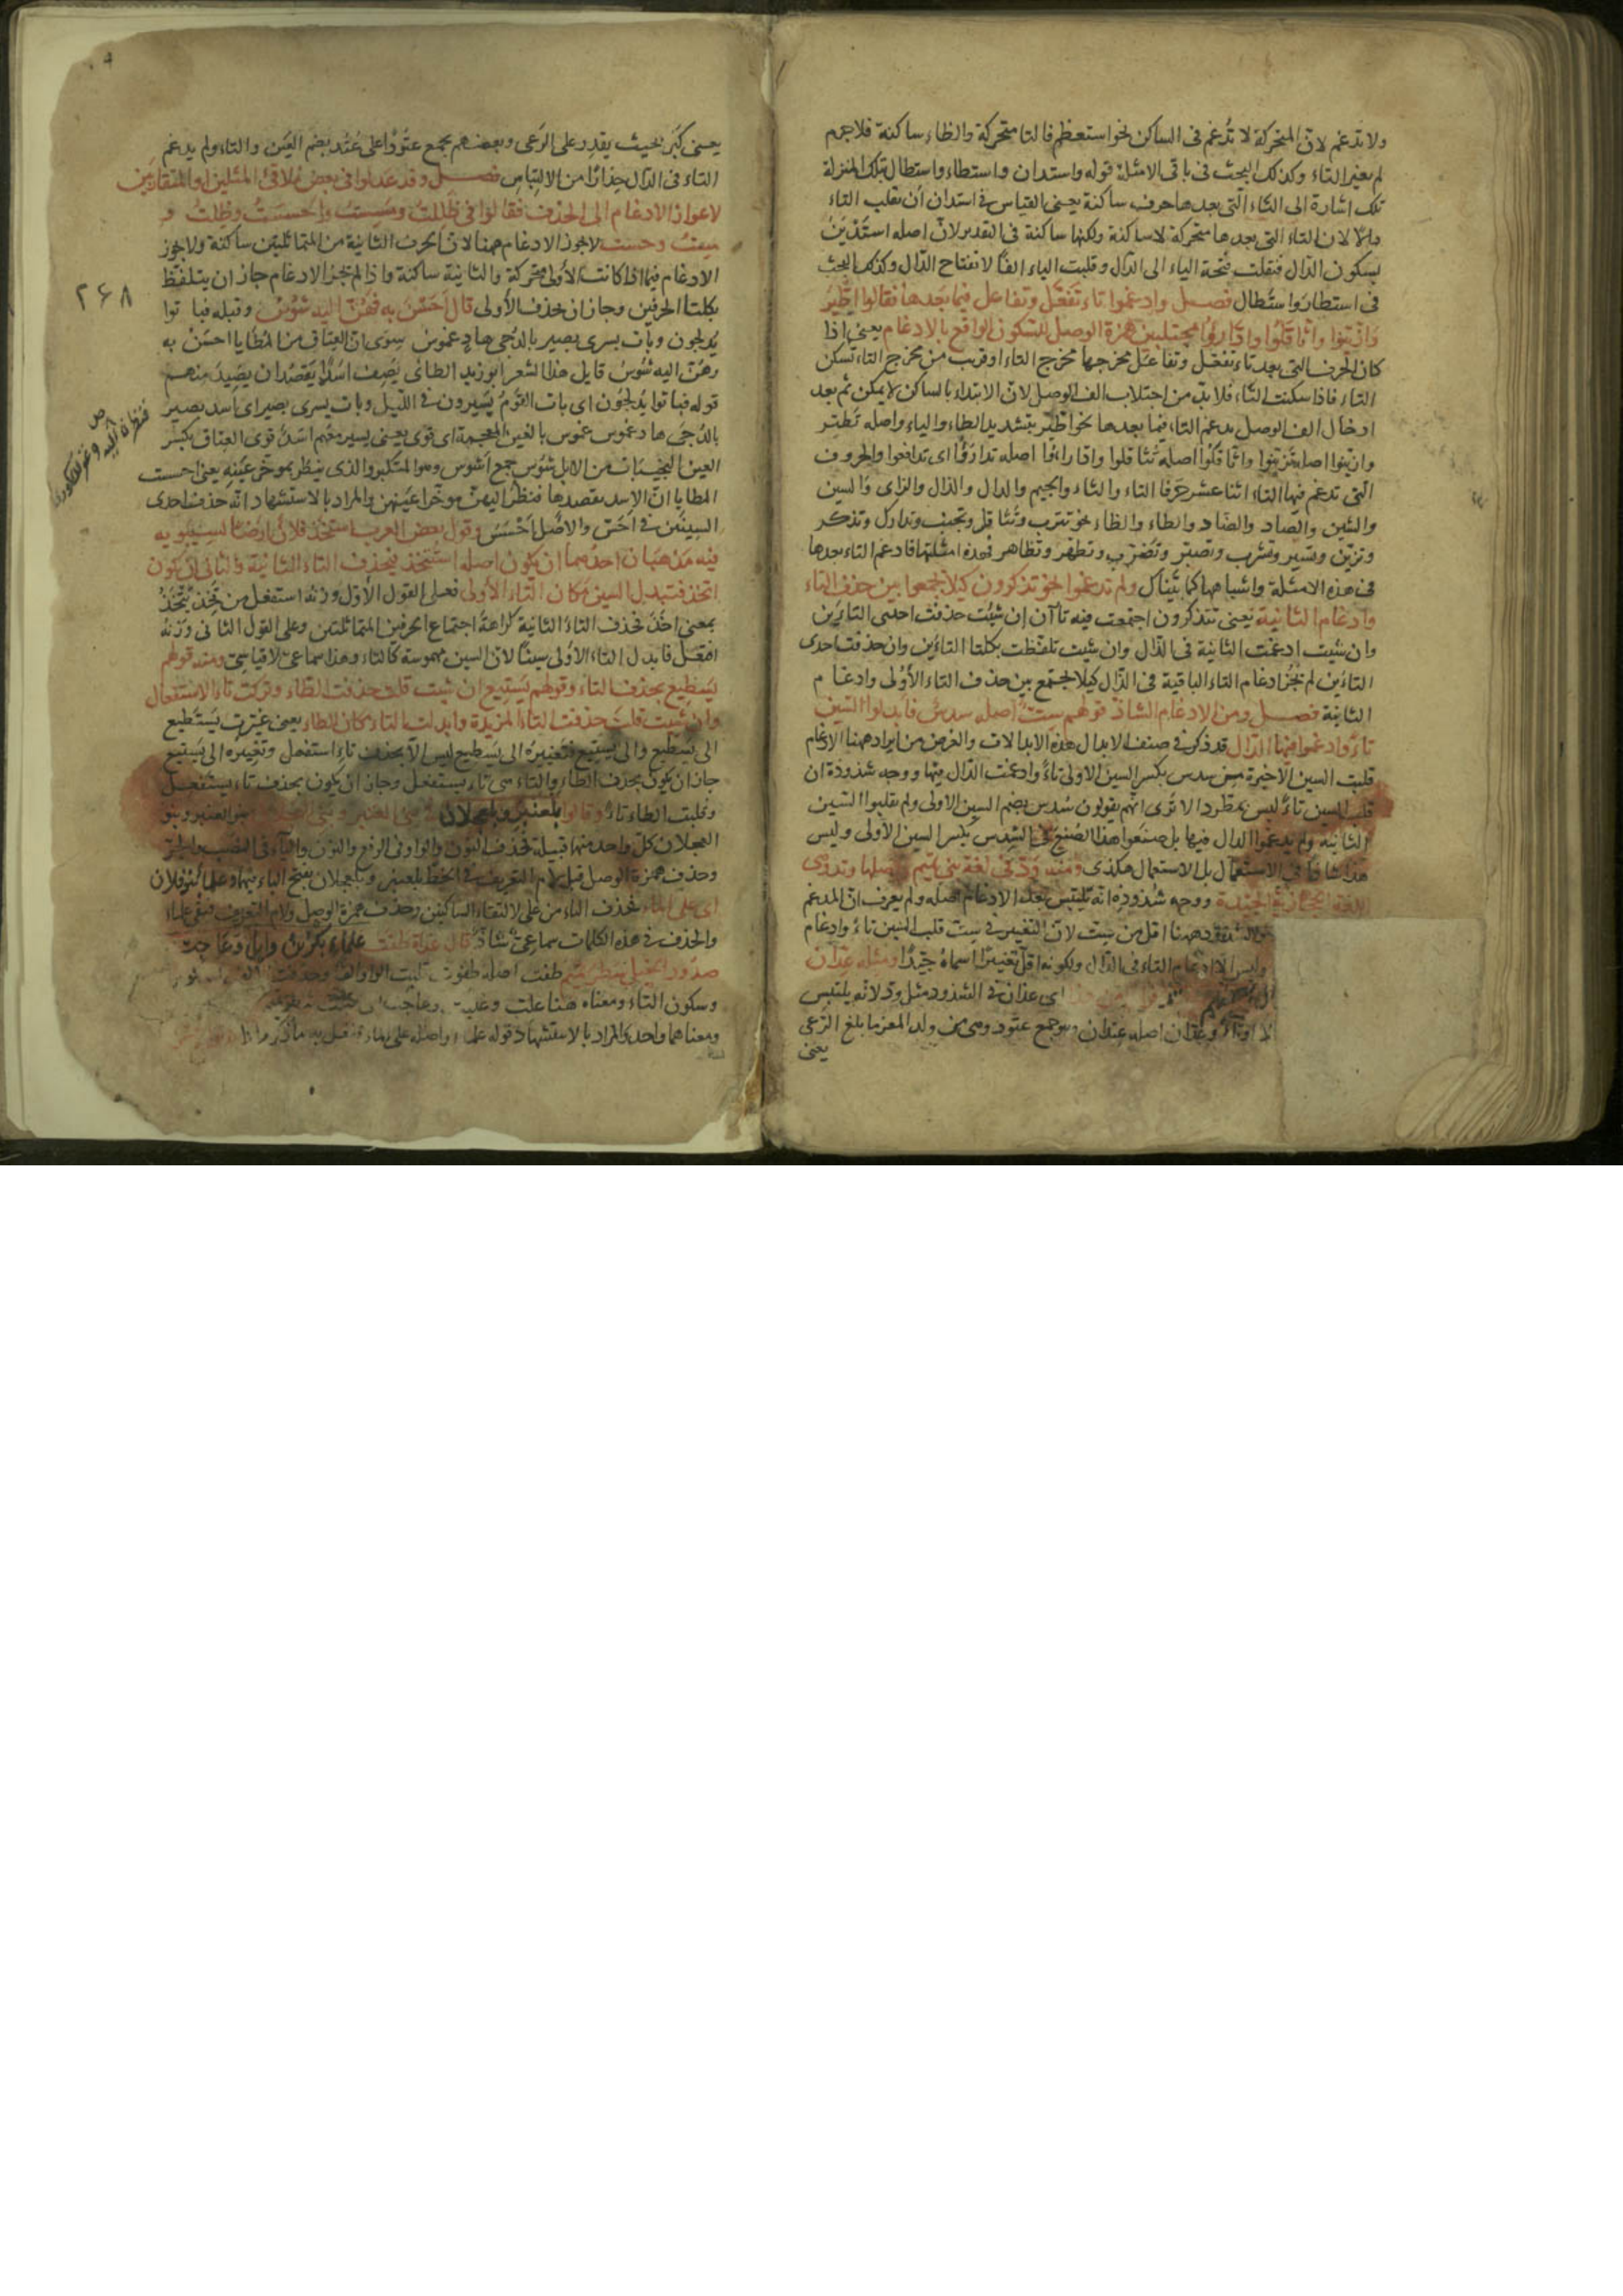 ولا تدغم لان المتحركة لا تُدغم فى الساكن نحو استعظم فالتا متحركة والظاء ساكنة فلا جرم
لم يغير التاء وكذلك البحث فى باقى الامثلة قوله واستدان واستطاء واستطال بتلك المنزلة
تلك اشارة الى التاء التى بعدها حرف ساكنة يعنى القياس فى استدان ان تقلب التاء
دالا لان التاء التى بعدها متحركة لا ساكنة ولكنها ساكنة فى التقدير لان اصله استَدْيَنَ
بسكون الدال فنقلت فتحة الياء الى الدال وقلبت الياء الفًا لانفتاح الدال وكذلك البحث
فى استطار واستطال فصل وادغموا تاء تَفَعَّل وتفاعل فيما بعدها فقالوا اطَّيَّر
وازّيّنوا واثّاقلوا وادّارؤا مجتلبين همزة الوصل للسكون الواقع بالادغام يعنى اذا
كان الحرف التى بعد تاء تفعّل وتفاعل مخرجها مخرج التاء او قريب من مخرج التاء تسكن
التاء فاذا سكنت التاء فلا بد من اجتلاب الف الوصل لان الابتداء بالساكن لا يمكن ثم بعد
ادخال الف الوصل يدغم التاء فيما بعدها نحو اطّيّر بتشديد الطاء والياء واصله تَطيّر
وازّيّنوا اصله تزيّنوا واثّاقلوا اصله تثاقلوا وادّارءُوا اصله تدارَؤُا اى تدافعوا والحروف
التى تدغم فيها التاء اثنا عشر حرفا التاء والثاء والجيم والدال والذال والزاى والسين
والشين والصاد والضاد والطاء والظاء نحو تترب وتثاقل وتجنب وتدارك وتذكر
وتزيّن وتسير وتشرب وتصبّر وتضرّب وتطهّر وتظاهر فهذه امثلتها فادغم التاء بعدها
فى هذه الامثلة واشباهها كما بيّناك ولم تدغموا نحو تذكرون كيلا يجمعوا بين حذف التاء
وادغام الثانية يعنى تتذكرون اجتمعت فيه تاآن ان شئت حذفت احدى التاءين
وان شئت ادغمت الثانية فى الذال وان شئت تلفّظت بكلتا التاءين وان حذفت احدى
التاءين لم تَجُز ادغام التاء الباقية فى الذال كيلا يجتمع بين حذف التاء الأُولى وادغام
الثانية فصل ومن الادغام الشاذ قولهم سِتّ اصله سدس فابدلوا السين
تاءً وادغموا فيها الدال قد ذكر فى صنف الابدال هذه الابدالات والغرض من ايراد ههنا الادغام
قلبت السين الاخيرة من سدس بكسر السين الاولى تاءً وادغمت الدال فيها ووجه شذوذه ان
قلب السين تاءً ليس بمطّرد الا ترى انهم يقولون سُدس بضم السين الاولى ولم يقلبوا السين
الثانية ولم يدغموا الدال فيها بل صنعوا هذا الصُنع فى السِّدس بكسر السين الأولى وليس
هذا شاذًا فى الاستعمال بل الاستعمال هكذى ومنه وَدّ فى لغة بنى تميم واصلها وتد وهى
اللغة الحجازية الجيّدة ووجه شذوذه انه يلتبس بعد الادغام اصله ولم يعرف ان المدغم
ههنا اقل من سِت لان التغيير فى سِت قلب السين تاءً وادغام
وليس الا ادغام التاء فى الدال ولكونه اقل تغييرًا اسماهُ جيّدًا ومثله عِدّان
اى عِدّان فى الشذوذ مثل ودّ لانه يلتبس
وعِدّان اصله عتدان وهو جمع عتود وهى من ولد المعز ما بلغ الرّعى
يعنى
يعنى كَبُر بحيث يقدر على الرّعى وبعضهم يجمع عتودًا على عُتُد بضم العين والتاء ولم يدغم
التاء فى الدال حِذارًا من الالتباس فصل وقد عدلوا فى بعض مُلاقى المثلين او المتقاربين
لاعواز الادغام الى الحذف فقالوا فى ظَلِلْتُ ومَسِسْتُ واحسَسْتُ وظَلْتُ و
مِسْتُ وحَسْتُ لا يجوز الادغام ههنا لان الحرف الثانية من المتماثلتين ساكنة ولا يجوز
الادغام فيما اذا كانت الأولى متحركة والثانية ساكنة واذا لم يَجُز الادغام جاز ان يتلفّظ
بكلتا الحرفين وجاز ان يحذف الأولى قال احَسْنَ به فهُنّ اليه شُوسُ وقبله فباتوا
يُدلِجون وبات يسرى بصير بالدُّجى هادٍ غموسُ سِوَى انّ العِتاق من المطايا احسْن به
وهُنّ اليه شُوسُ قايل هذا الشعر ابو زبيد الطائى يَصِف اسدًا يقصد ان يصيدَ منهم
قوله فباتوا يُدلِجُون اى بات القومُ يَسِيرون فى اللّيل وبات يسرى بصير اى اسد بصير
بالدُّجى هادٍ غموس غموس بالغين المعجمة اى قوى يعنى يسير معهم اسَدٌ قوى العِتاق بكسر
العين النجيبات من الابل شُوس جمع اَشوس وهو المتكبر والذى ينظر بموخّر عَينه يعنى احست
المطايا انّ الاسد يقصدها فنظر اليهن موخّر اعينهن والمراد بالاستشهاد انّه حذفت احدى
السينين فى احَسّ والاصل احْسَسْن وقول بعض العرب استخذ فلان ارضا لسيبويه
فيه مذهبان احدهما ان يكون اصله استتخذ فيحذف التاء الثانية والثانى ان يكون
اتّخذ فتبدل السين مكان التاء الأولى فعلى القول الأوّل وزنه استفعل من تَخِذ يتّخذُ
بمعنى اخذ فحذف التاءَ الثانية كراهةَ اجتماع الحرفين المتماثلتين وعلى القول الثانى وزنه
افتعل فابدل التاء الاولى سينًا لان السين مهموسة كالتاء وهذا سماعىّ لا قياسىّ ومنه قولهم
يَسْطِيع بحذف التاء وقولهم يَسْتِيع ان شئت قلت حذفت الطاء وتركت تاء الاستفعال
وان شئت قلتَ حذفت التاء المزيدة وابدلت التاء مكان الطاء يعنى غيّرت يَسْتَطيع
الى يَسْطيع والى يَسْتِيع فتغييره الى يَسْطيع ليس الا بحذف تاء استفعل وتغييره الى يَسْتيع
جاز ان يكون بحذف الطاء والتاء هى تاء يستفعل وجاز ان يكون بحذف تاء يستفعل
وقلبت الطاء تاءً وقالوا بَلْعَنبرِ وبلعجلان فى بنى العنبر وبنى العجلان بنو العنبر وبنو
العجلان كلّ واحد منهما قبيلة فحذف النون والواو فى الرفع والنون والياء فى النصب والجرّ
وحذف همزة الوصل قبل لام التعريف فى الخط بلعنبر وبلعجلان بفتح الباء فيهما وعلماءِ بنو فلان
اى على الماء فحذف الياء من على لالتقاء الساكنين وحذف همزة الوصل ولام التعريف فبقى علماءِ
والحذف فى هذه الكلمات سماعىّ شاذ قال غداة طفت علماءِ بكر بن وايل وعاجت
صدور الخيل شطر تميم طفت اصله طفوت قلبت الواو الفا وحذفت
وسكون التاء ومعناه هنا علت وعاجت اى
ومعناهما واحد والمراد بالاستشهاد قوله علماءِ واصله على الماء
۲۶۸